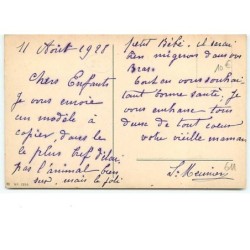 11 Août 1928
Chers Enfants
Je vous envoie
un modèle à
copier dans
le plus bref délai
pas l'animal bien
sur, mais le joli
petit Bébé, il serai
bien mignon dans vos
Bras
tout en vous souhai
tant bonne santé, je
vous embrasse tous
deux de tout coeur
votre vieille maman
L. Meunier